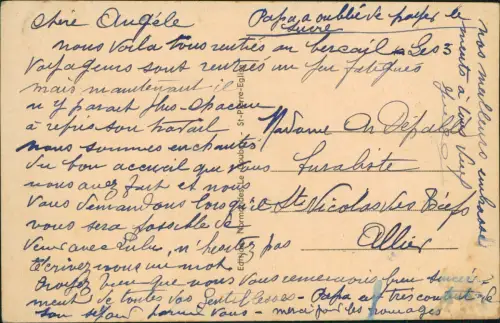 Chère Angèle
Papa a oublié de payer le
sucre
nous voilà tous rentrés au bercail – Les 3
voyageurs sont rentrés un peu fatigués
mais maintenant il
n'y parait plus – chacun
à repris son travail
nous sommes enchantés
du bon accueil que vous
nous avez fait et nous
vous demandons lorsqu'il
vous sera possible de
venir avec Lulu, n'hésitez pas
Ecrivez nous un mot
croyez bien que nous vous remercions bien sincère
ment de toutes vos gentillesses – Papa est très content de
son séjour parmi vous – merci pour les fromages
Madame
à St Nicolas des Biefs
Allier
nos meilleurs
ments à vous
St-Pierre-Eglise